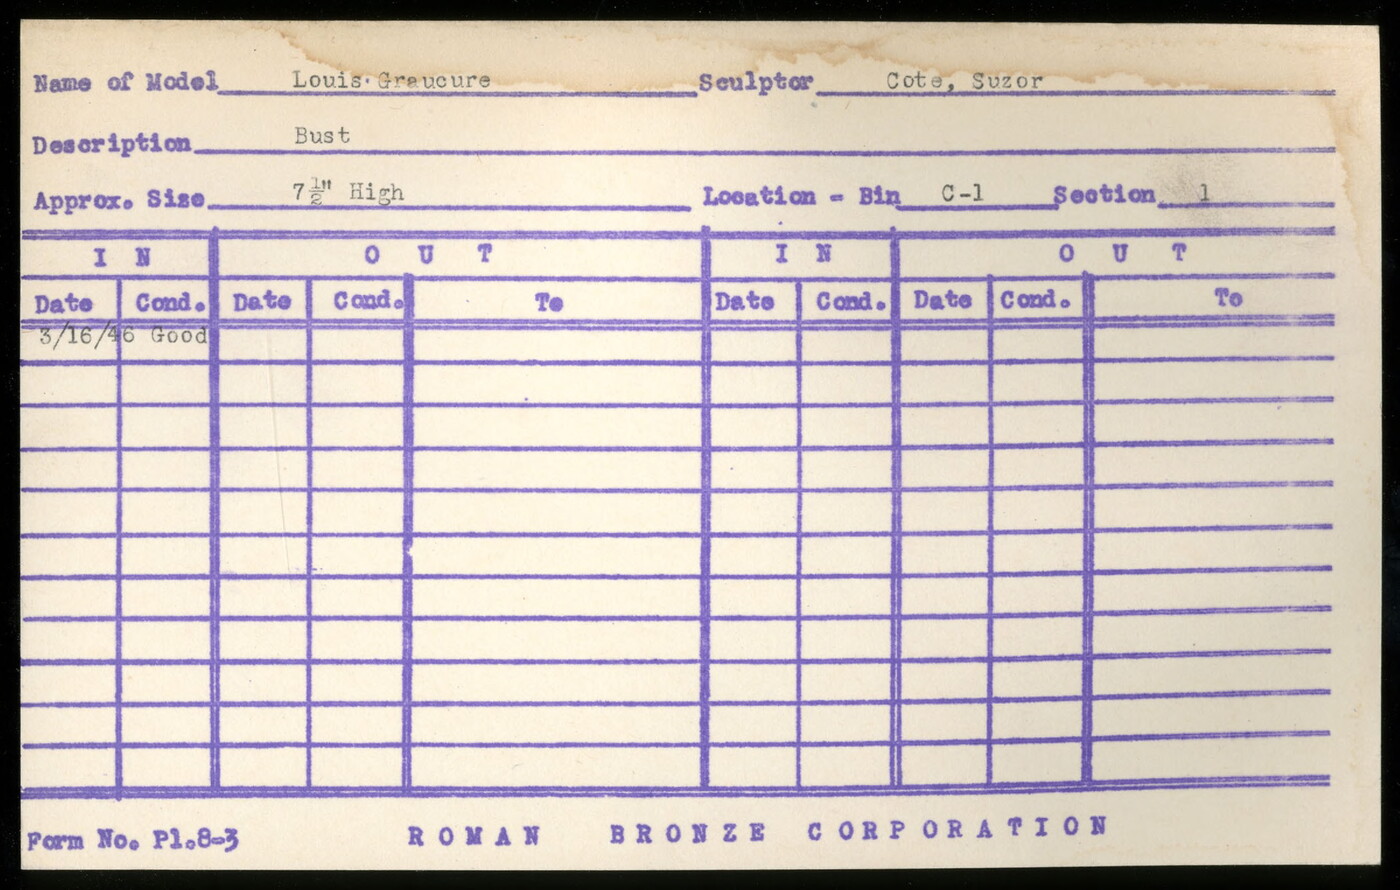 Name of Model Louis Graucure Sculptor Cote, Suzor
Description Bust
Approx. Size 7½" High Location - Bin C-1 Section 1
I N O U T I N O U T
Date Cond. Date Cond. To Date Cond. Date Cond. To
3/16/46 Good
Form No. Pl.8-3 ROMAN BRONZE CORPORATION